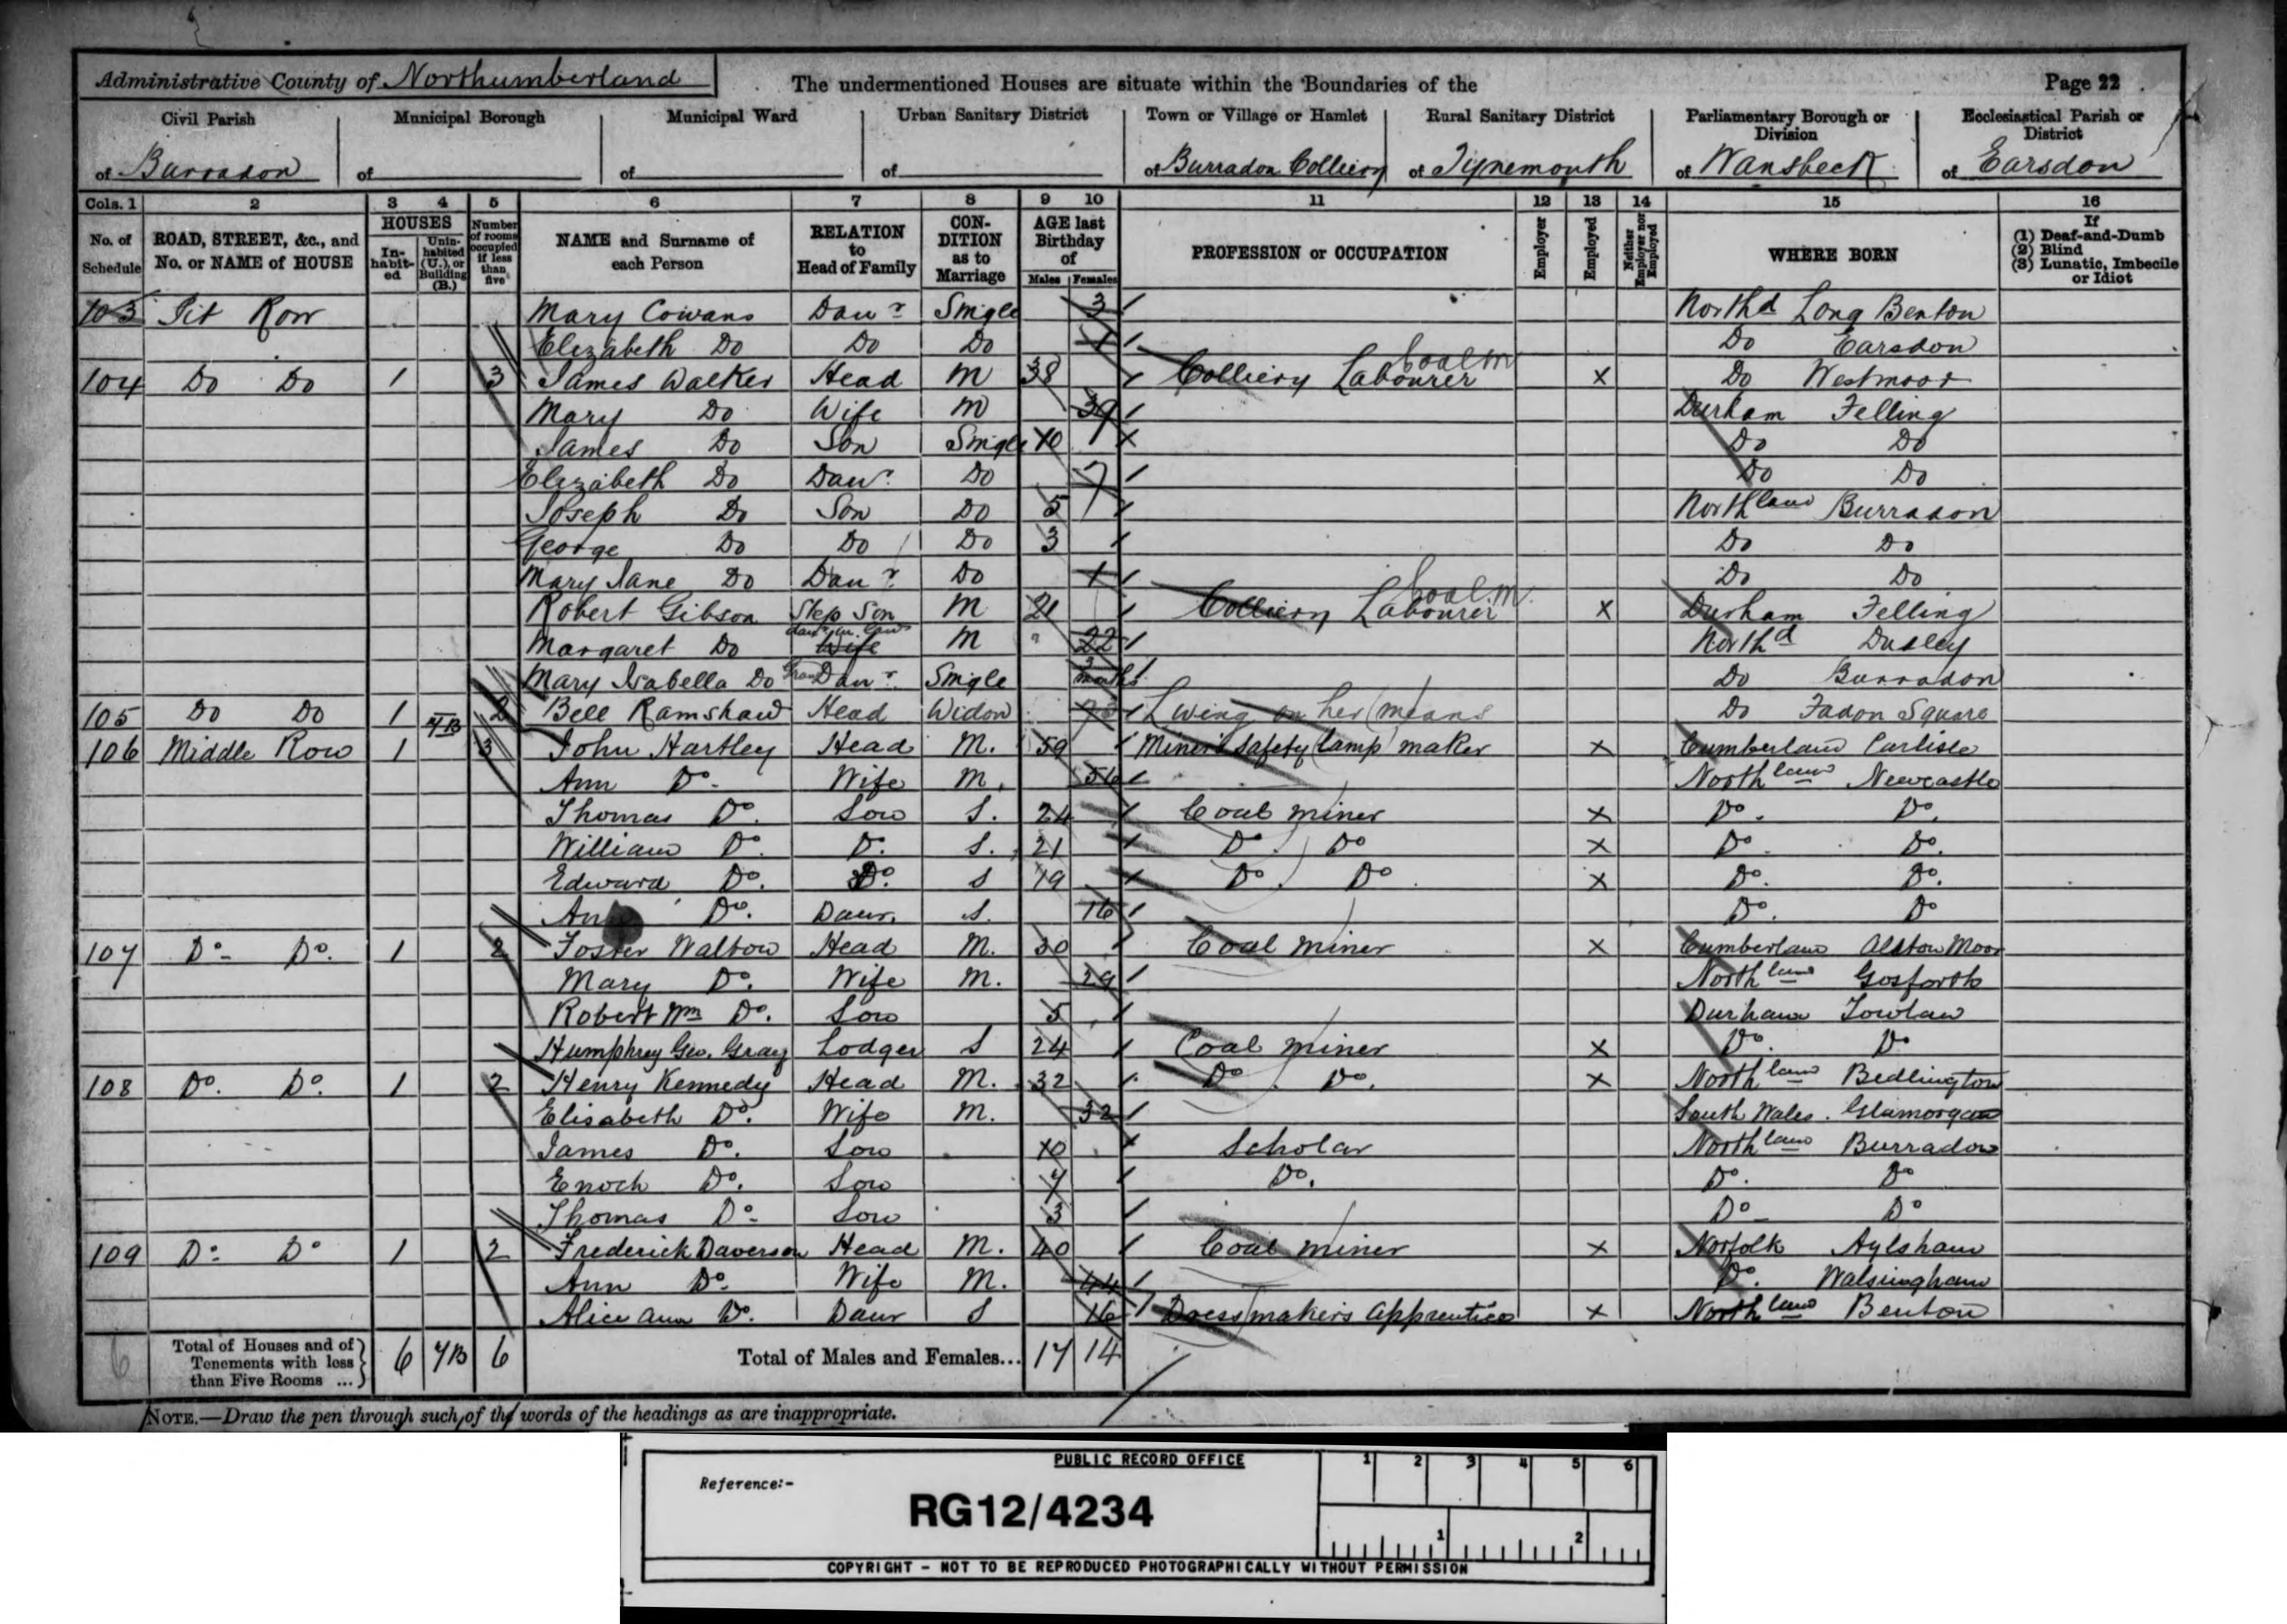 Administrative County of Northumberland The undermentioned Houses are situate within the Boundaries of the Page 22
Civil Parish Municipal Borough Municipal Ward Urban Sanitary District Town or Village or Hamlet Rural Sanitary District Parliamentary Borough or Division Ecclesiastical Parish or District
of Burradon of of of of Burradon Colliery of Tynemouth of Wansbeck of Earsdon
Cols. 1 2 3 4 5 6 7 8 9 10 11 12 13 14 15 16
No. of Schedule ROAD, STREET, &c., and No. or NAME of HOUSE HOUSES Inhabited Uninhabited (U.), or Building (B.) Number of rooms occupied if less than five NAME and Surname of each Person RELATION to Head of Family CONDITION as to Marriage AGE last Birthday of Males Females PROFESSION or OCCUPATION Employer Employed Neither Employer nor Employed WHERE BORN If (1) Deaf-and-Dumb (2) Blind (3) Lunatic, Imbecile or Idiot
103 Pit Row Mary Cowans Daur Single 3 Northd Long Benton
Elizabeth Do Do Do 1 Do Earsdon
104 Do Do 1 3 James Walker Head M 38 Colliery Labourer Coal m X Do Westmoor
Mary Do Wife M 39 Durham Felling
James Do Son Single 10 Do Do
Elizabeth Do Daur Do 7 Do Do
Joseph Do Son Do 5 Northland Burradon
George Do Do Do 3 Do Do
Mary Jane Do Daur Do 1 Do Do
Robert Gibson Step Son M 21 Colliery Labourer Coal m X Durham Felling
Margaret Do daur in law Wife M 22 Northd Dudley
Mary Isabella Do Gran Daur Single 3 months Do Burradon
105 Do Do 1 2 Bell Ramshaw Head Widow Living on her means Do Fadon Square
106 Middle Row 1 3 John Hartley Head M. 59 Miner's Safety lamp maker X Cumberland Carlisle
Ann Do. Wife M. 56 Northland Newcastle
Thomas Do. Son S. 24 Coal miner X Do. Do.
William Do. Do. S. 21 Do. Do X Do. Do.
Edward Do. Do. S 19 Do. Do X Do. Do.
Ann Do. Daur. S. 16 Do. Do
107 Do. Do. 1 2 Foster Walton Head M. 30 Coal miner X Cumberland Alston Moor
Mary Do. Wife M. 29 Northland Gosforth
Robert Wm Do. Son 5 Durham Towlaw
Humphrey Geo. Gray Lodger S 24 Coal miner X Do. Do
108 Do. Do. 1 2 Henry Kennedy Head M. 32 Do. Do. X Northland Bedlington
Elisabeth Do. Wife M. 32 South Wales. Glamorgan
James Do. Son 10 Scholar Northland Burradon
Enoch Do. Son 7 Do. Do. Do
Thomas Do. Son 3 Do Do
109 Do. Do 1 2 Frederick Daverson Head M. 40 Coal miner X Norfolk Aylsham
Ann Do. Wife M. 44 Do. Walsingham
Alice Ann Do. Daur S 16 Dressmakers apprentice X Northland Benton
6 Total of Houses and of Tenements with less than Five Rooms ... 6 7B 6 Total of Males and Females... 17 14
NOTE.—Draw the pen through such of the words of the headings as are inappropriate.
PUBLIC RECORD OFFICE
1 2 3 4 5 6
Reference:-
RG12/4234
1 2
COPYRIGHT - NOT TO BE REPRODUCED PHOTOGRAPHICALLY WITHOUT PERMISSION